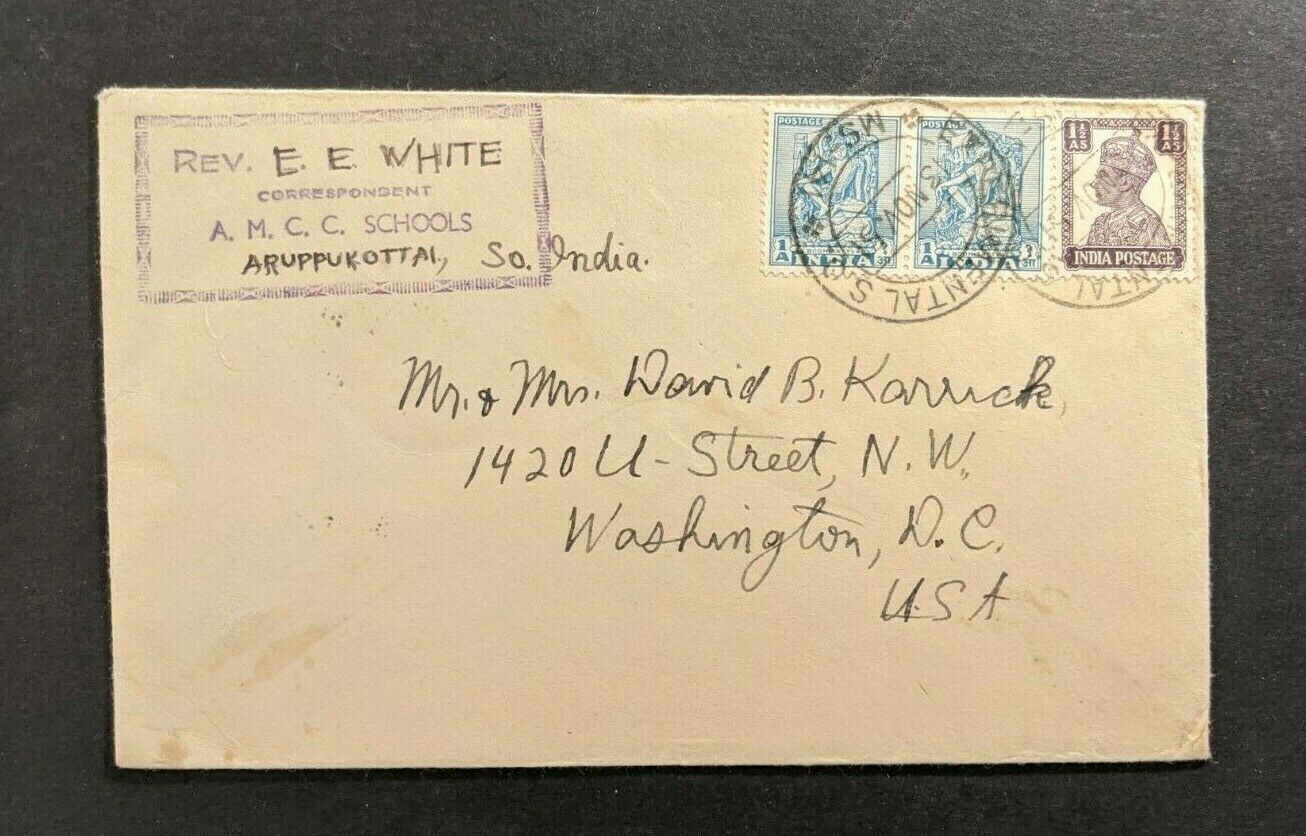 REV. E. E. WHITE
CORRESPONDENT
A. M. C. C. SCHOOLS
ARUPPUKOTTAI, So. India.
POSTAGE
1 A INDIA
POSTAGE
1 A INDIA
1½ AS 1½ AS
INDIA POSTAGE
NOV
Mr. & Mrs. David B. Karrick,
1420 U-Street, N.W.,
Washington, D.C.
USA